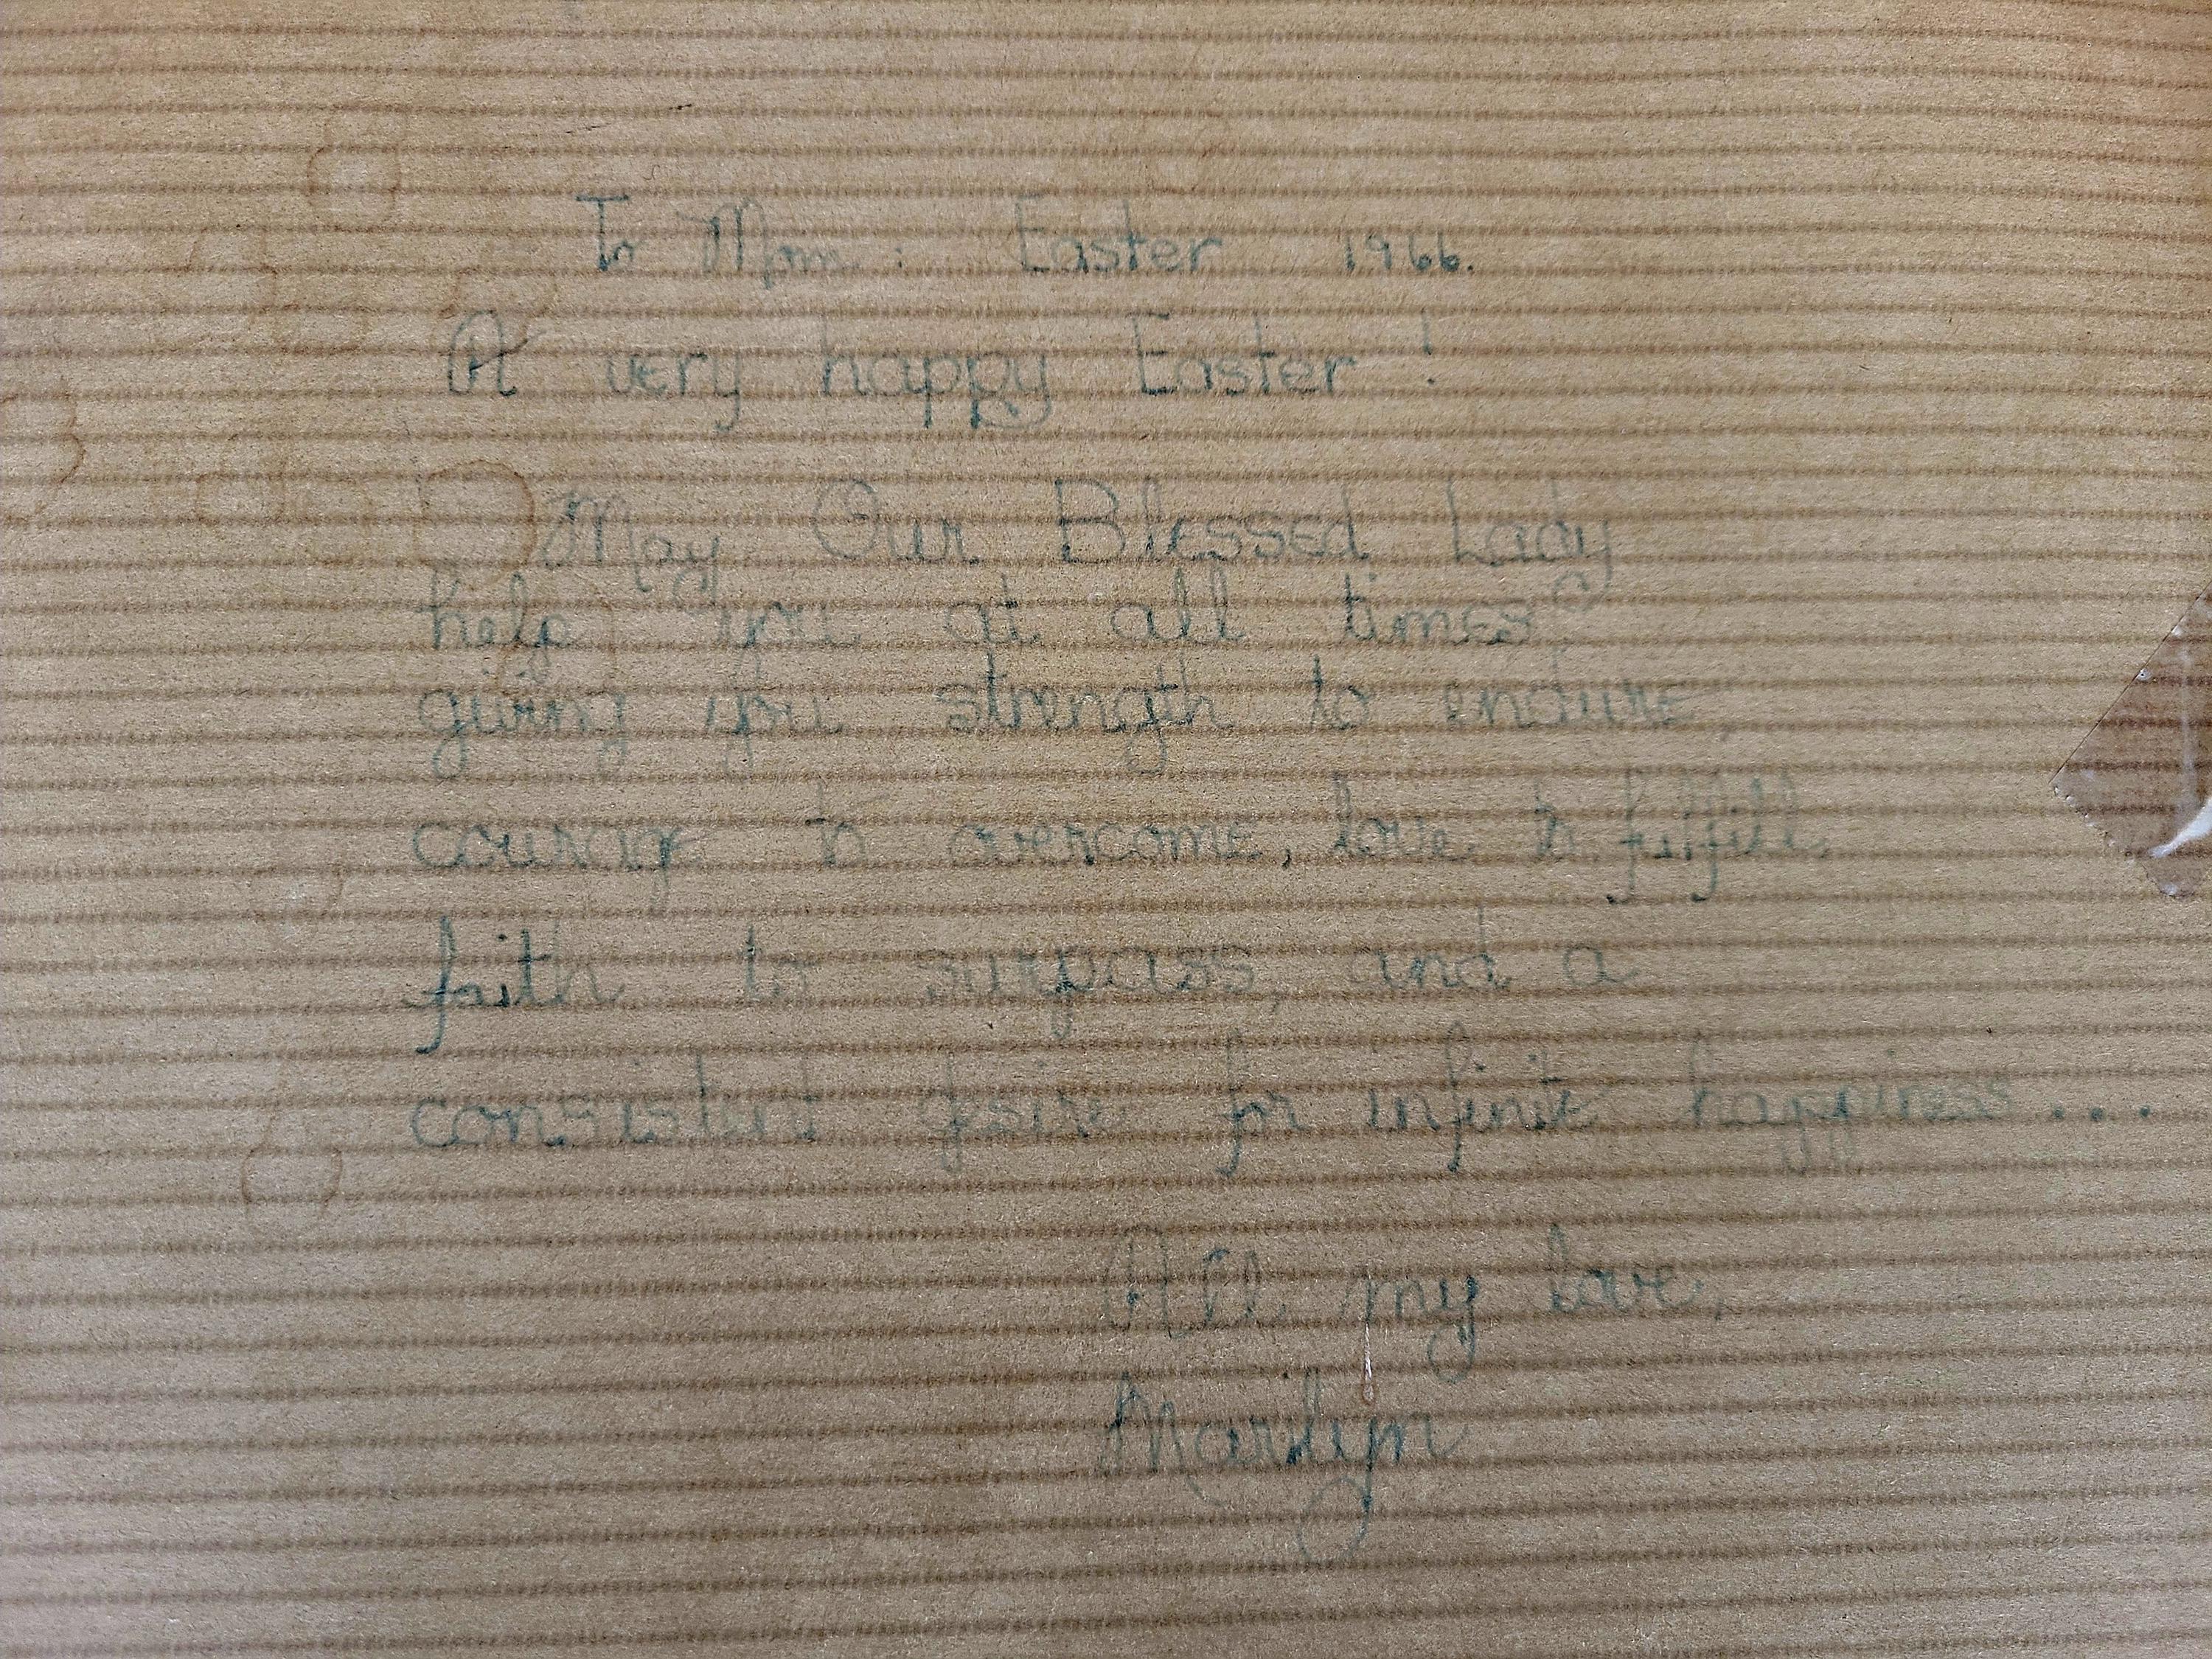 To Mom: Easter 1966.
A very happy Easter!
May Our Blessed Lady
help you at all times
giving you strength to endure
courage to overcome, love to fulfill
faith to surpass, and a
consistent desire for infinite happiness....
All my love,
Marilyn